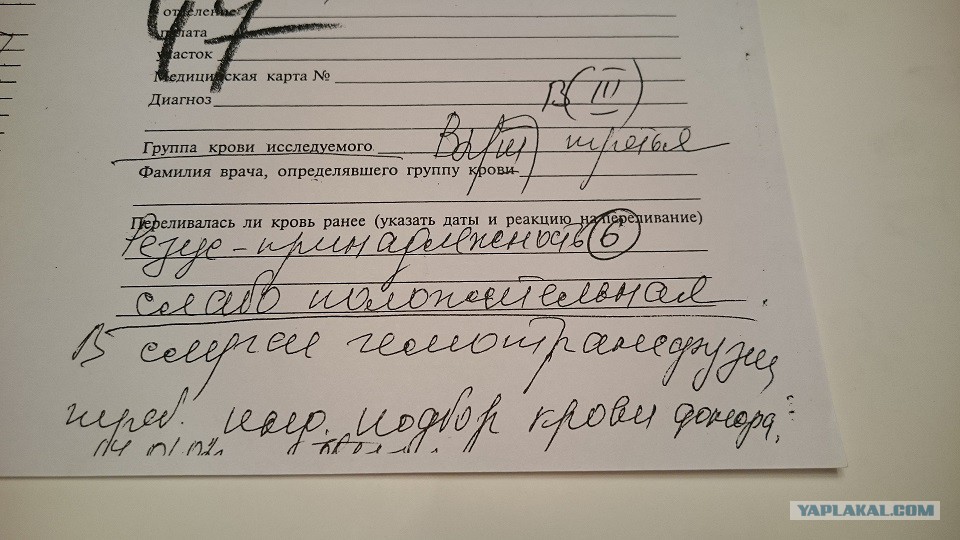 47
отделение
палата
участок
Медицинская карта №
Диагноз
В(III)
Группа крови исследуемого (III) третья
Фамилия врача, определявшего группу крови
Переливалась ли кровь ранее (указать даты и реакцию на переливание)
Резус-принадлежность 6
слабо положительная
В случае гемотрансфузии
треб. инд. подбор крови донора
YAPLAKAL.COM